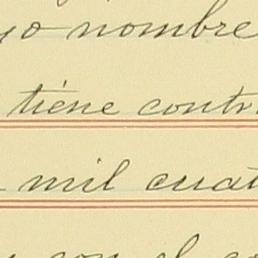 yo nombre
tiene contr
mil cuat
con el